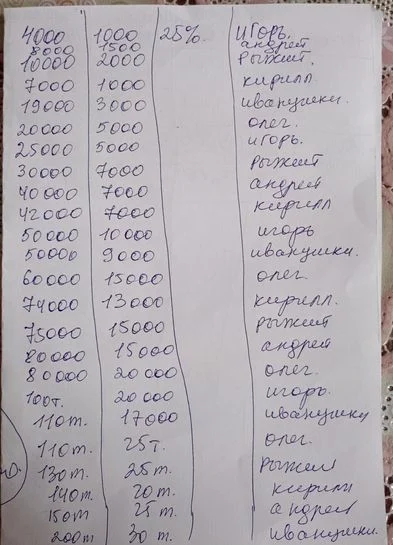 4000 1000 25% Игорь.
8000 1500 андрей
10000 2000 Рыжий
7000 1000 Кирилл.
19000 3000 иванушки.
20000 5000 олег.
25000 5000 игорь.
30000 7000 Рыжий
40000 7000 андрей
42000 7000 Кирилл
50000 10000 игорь
50000 9000 иванушки.
60000 15000 олег.
74000 13000 Кирилл.
75000 15000 Рыжий
80000 15000 андрей
80000 20000 олег.
100т. 20000 игорь.
110т. 17000 иванушки
110т. 25т. олег.
130т. 25т. Рыжий
140т. 20т. Кирилл
150т 25т. андрей
200т 30т. иванушки.